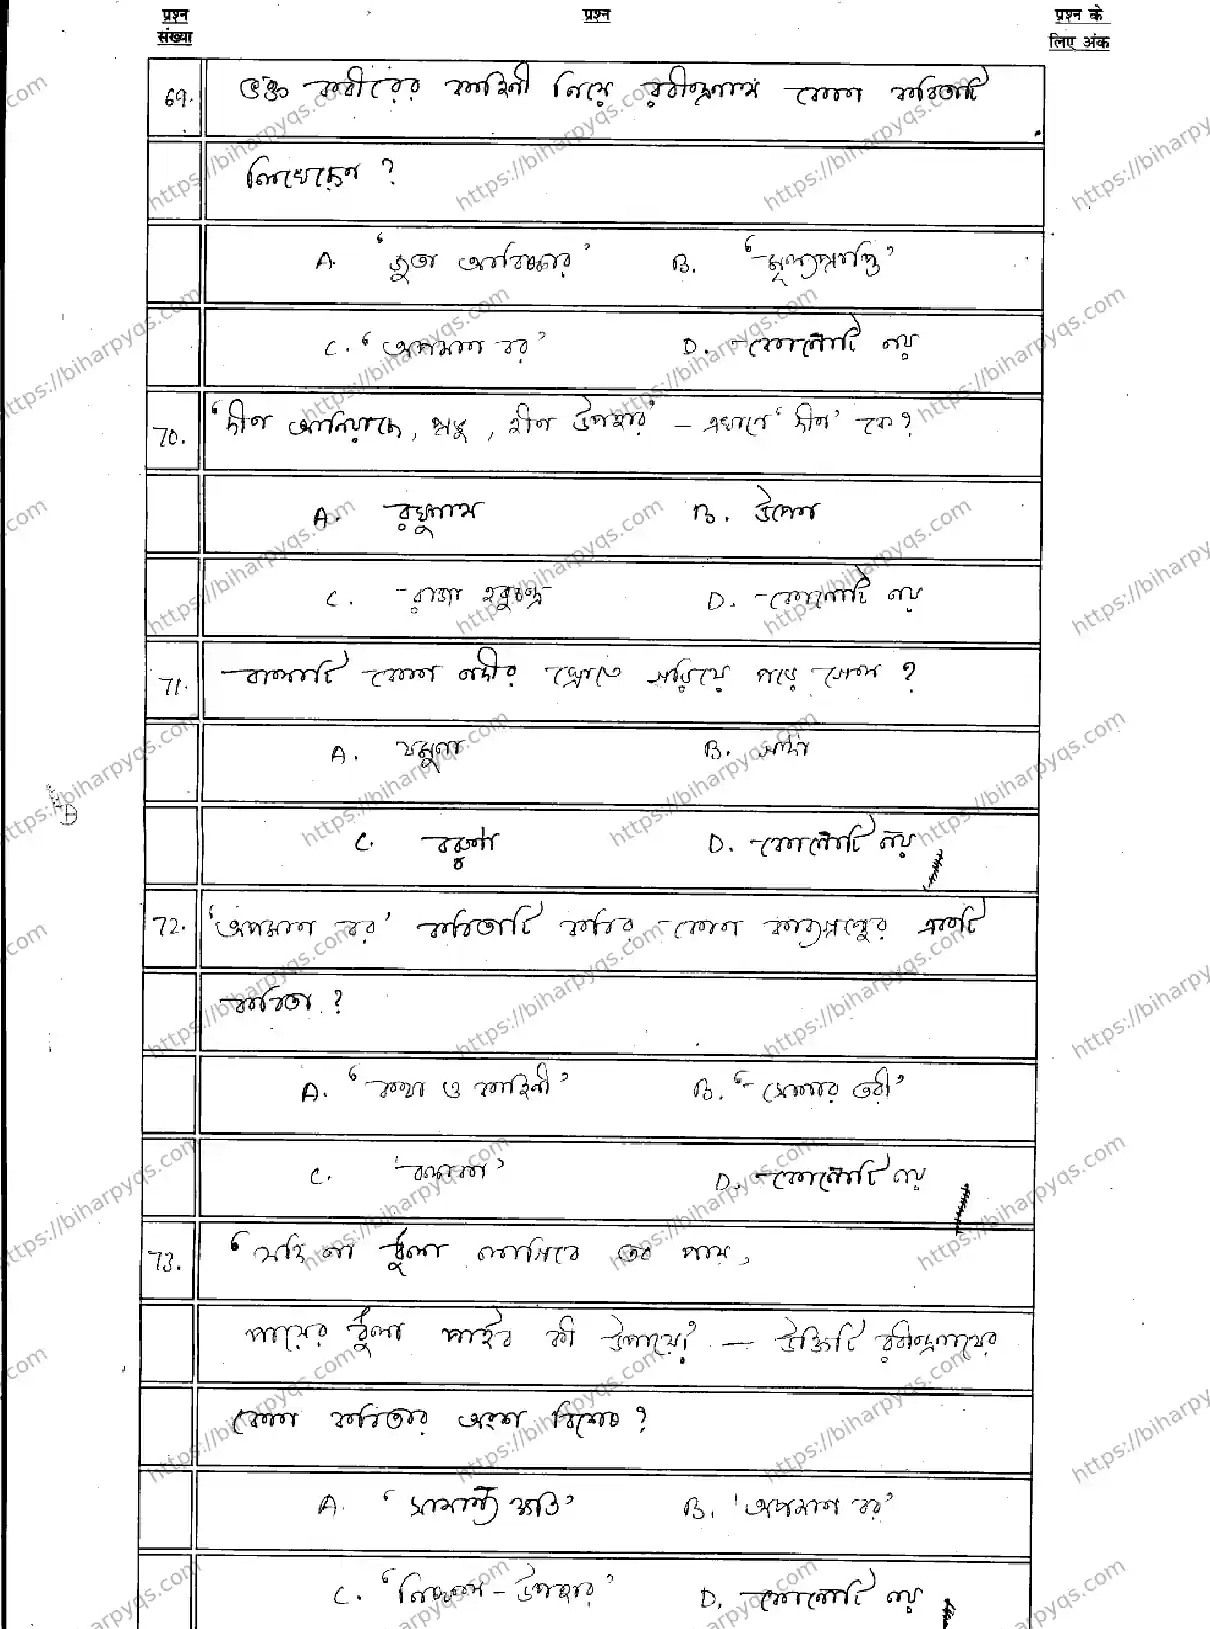 प्रश्न संख्या
प्रश्न
प्रश्न के लिए अंक
69. ভক্ত কবীরের কাহিনী নিয়ে রবীন্দ্রনাথ কোন কবিতাটি
লিখেছেন ?
A. 'জুতা আবিষ্কার' B. 'মূল্যপ্রাপ্তি'
C. 'অপমান বর' D. কোনোটি নয়
70. 'দীন আনিয়াছে, প্রভু, হীন উপহার' – এখানে 'দীন' কে ?
A. রঘুনাথ B. উপেন
C. রাজা হবুচন্দ্র D. কোনোটি নয়
71. বালাটি কোন নদীর স্রোতে গড়িয়ে পড়ে গেল ?
A. যমুনা B. গঙ্গা
C. বরুণা D. কোনোটি নয়
72. 'অপমান বর' কবিতাটি কবির কোন কাব্যগ্রন্থের একটি
কবিতা ?
A. 'কথা ও কাহিনী' B. 'সোনার তরী'
C. 'বলাকা' D. কোনোটি নয়
73. 'যদি না ধুলা লাগিবে তব পায়,
পায়ের ধুলা পাইব কী উপায়ে' — উক্তিটি রবীন্দ্রনাথের
কোন কবিতার অংশ বিশেষ ?
A. 'সামান্য ক্ষতি' B. 'অপমান বর'
C. 'নিষ্ফল - উপহার' D. কোনোটি নয়
https://biharpyqs.com